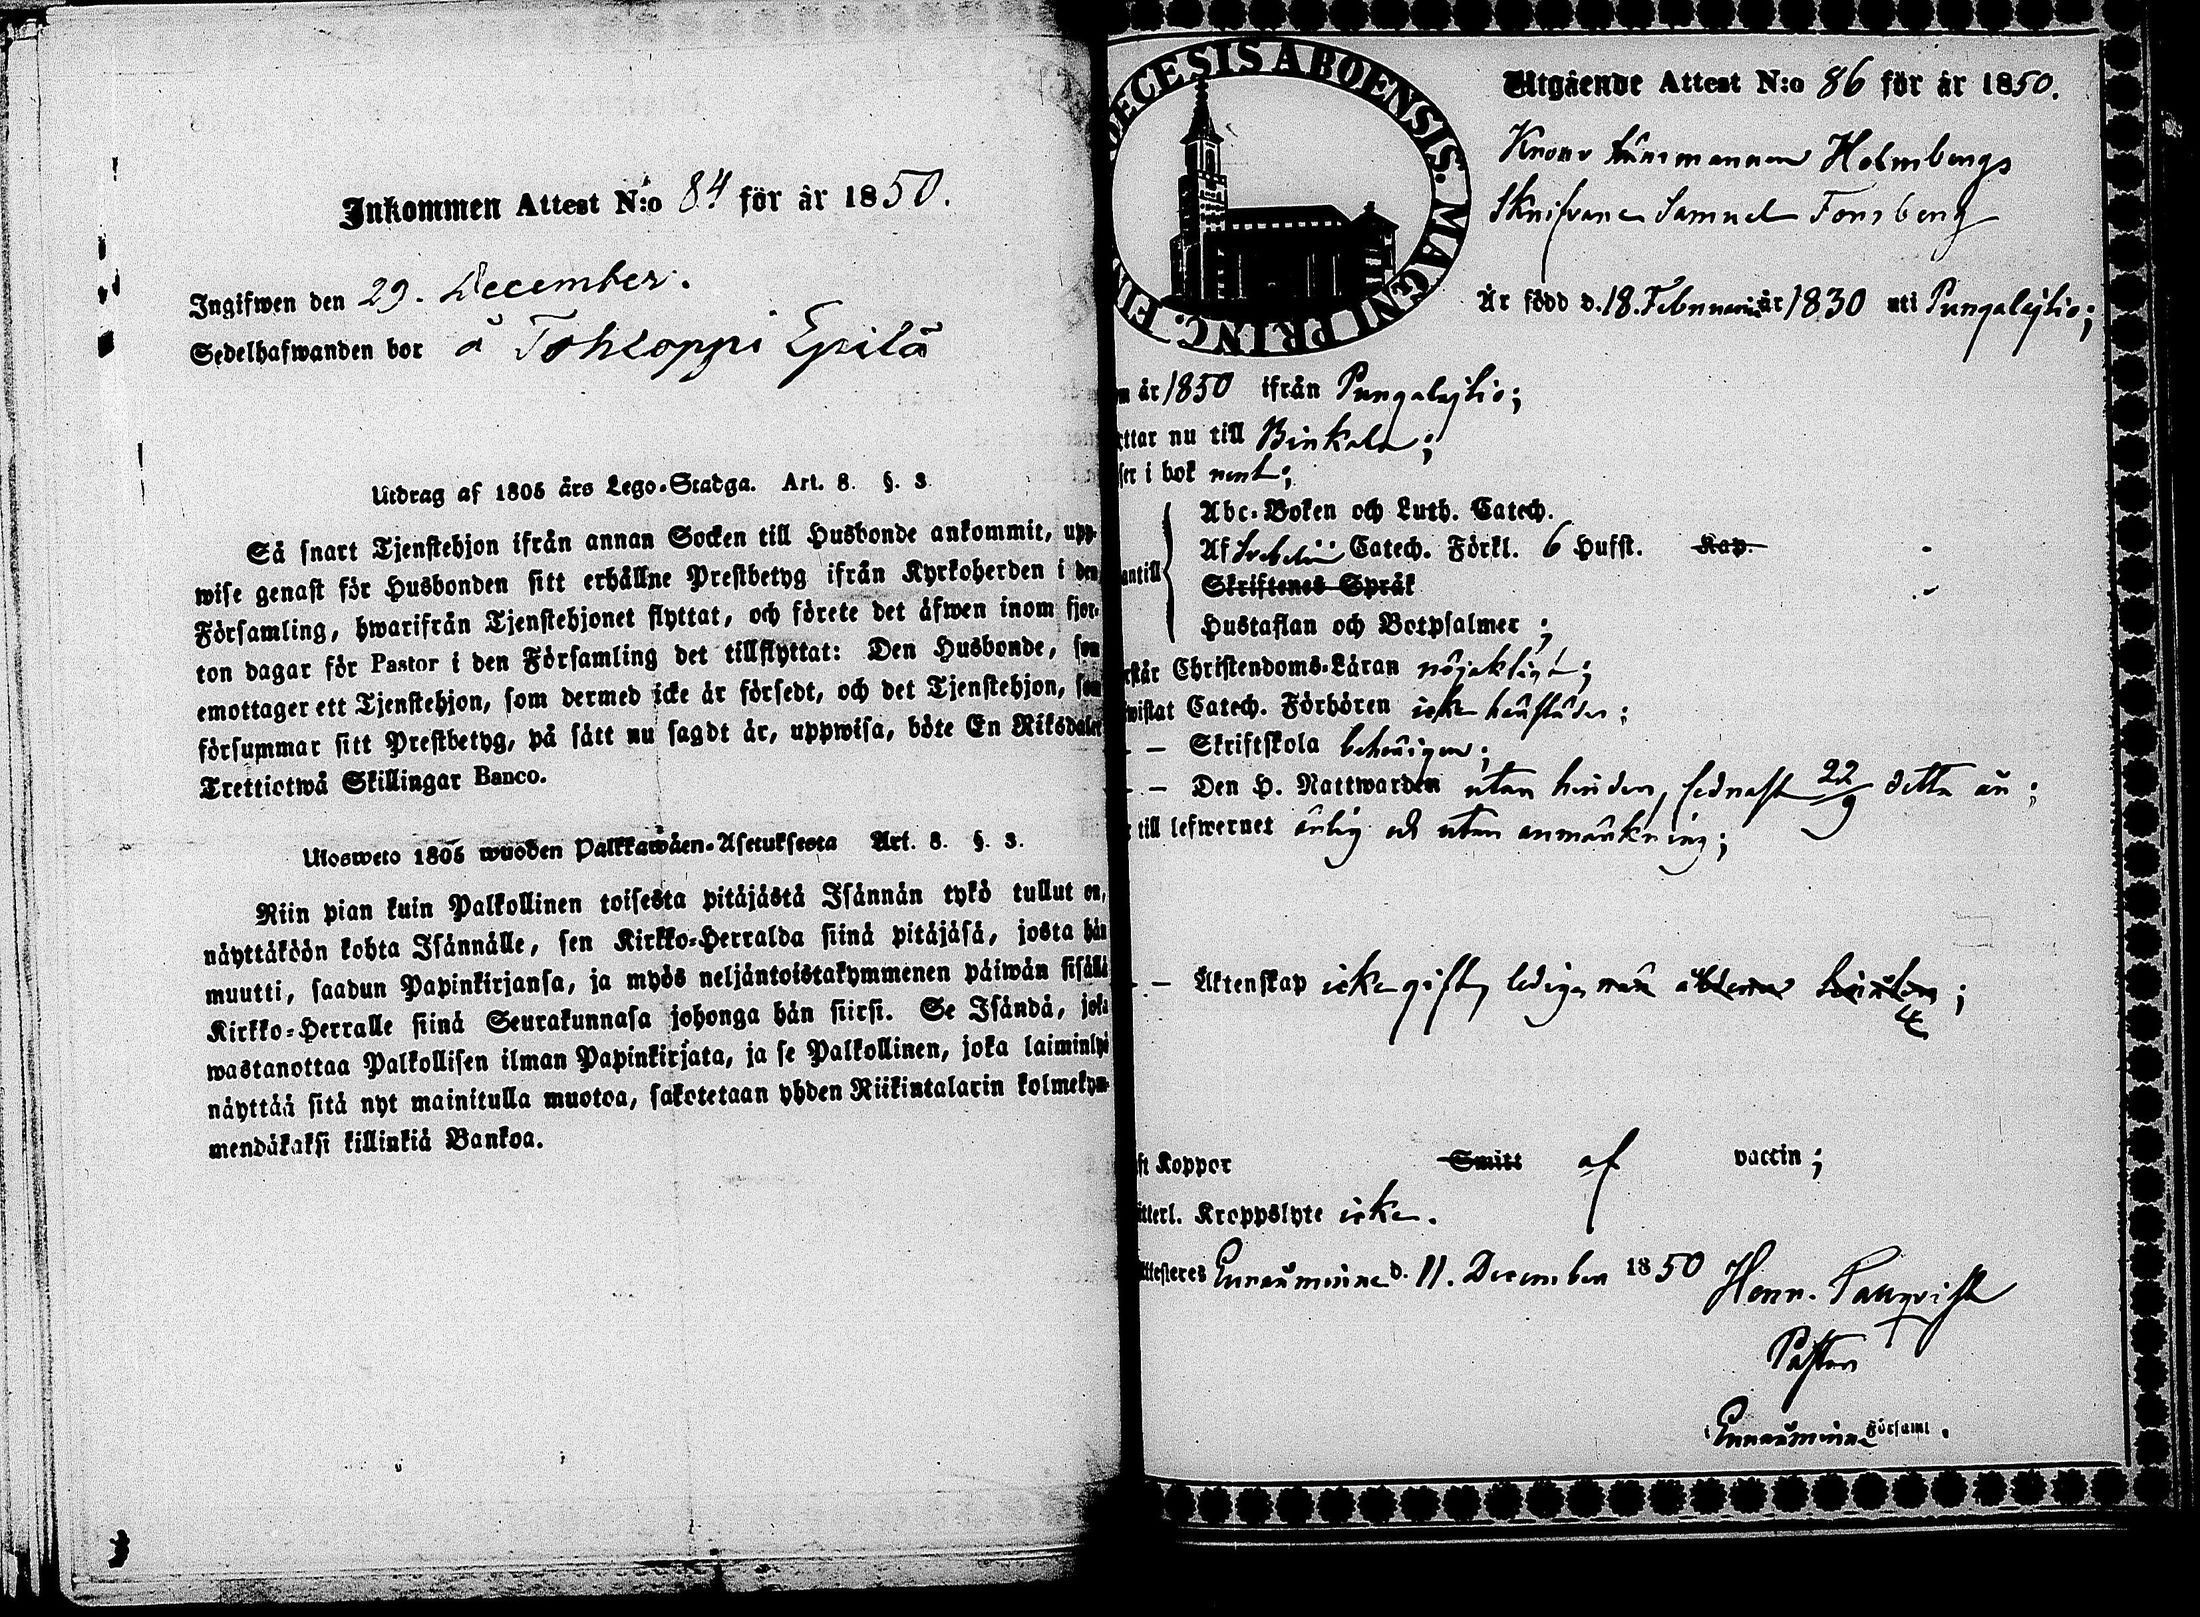 Inkommen Attest N:o 84 för år 1850.
Ingifwen den 29. December.
Sedelhafwanden bor å Tohloppi Epilä
Utdrag af 1805 års Lego-Stadga. Art. 8. §. 3
Så snart Tjenstehjon ifrån annan Socken till Husbonde ankommit, upp-
wise genast för Husbonden sitt erhållne Prestbetyg ifrån Kyrkoherden i den
Församling, hwarifrån Tjenstehjonet flyttat, och förete det äfwen inom fjor-
ton dagar för Pastor i den Församling det tillflyttat: Den Husbonde, som
emottager ett Tjenstehjon, som dermed icke är försedt, och det Tjenstehjon, som
försummar sitt Prestbetyg, på sätt nu sagdt är, uppwisa, böte En Riksdaler
Trettiotwå Skillingar Banco.
Ulosweto 1805 wuoden Palkkawäen-Asetuksesta Art. 8. §. 3.
Niin pian kuin Palkollinen toisesta pitäjästä Isännän tykö tullut on,
näyttäköön kohta Isännälle, sen Kirkko-Herralda siinä pitäjäsä, josta hän
muutti, saadun Papinkirjansa, ja myös neljäntoistakymmenen päiwän sisällä
Kirkko-Herralle siinä Seurakunnasa johonga hän siirsi. Se Isändä, joka
wastanottaa Palkollisen ilman Papinkirjata, ja se Palkollinen, joka laiminlyö
näyttää sitä nyt mainitulla muotoa, sakotetaan yhden Riikintalarin kolmekym-
mendäkaksi killinkiä Bankoa.
ECESIS ABOENSIS. MAGNI PRINC. FI
Utgående Attest N:o 86 för år 1850.
Krono Länsmannen Holmbergs
Skrifvare Samuel Forsberg
Är född d. 18. Februarii år 1830 uti Pungalaitio;
n år 1850 ifrån Pungalaitio;
ttar nu till Birkala;
ser i bok rent;
Abc-Boken och Luth. Catech.
Af Svebelii Catech. Förkl. 6 Hufst. Kap.
antill
Skriftenes Språk
Hustaflan och Botpsalmer;
rstår Christendoms-Läran nöjaktigt;
wistat Catech. Förhören icke härstädes;
– – Skriftskola behörigen;
– – Den H. Nattwarden utan hinder, sednast 22/9 detta år;
till lefwernet ärlig och utan anmärkning;
– – Äktenskap icke gift, ledig
ft Koppor Smitt af vaccin;
itterl. Kroppslyte icke.
Attesteres Ennäiminne d. 11. December 1850 Henr.
Pastor
i Ennäiminne Församl.